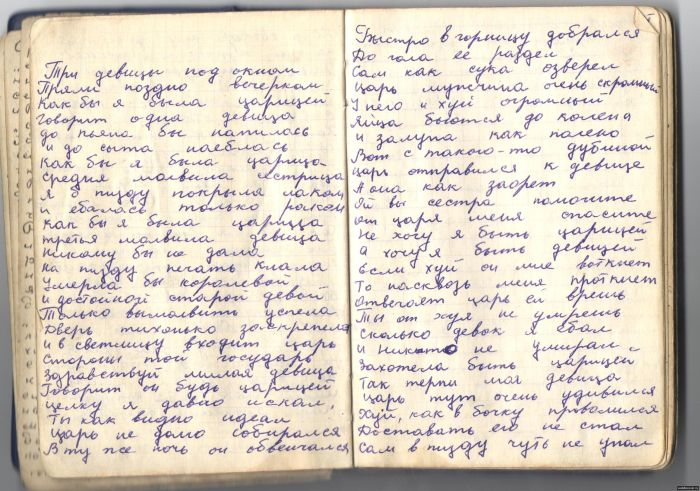 Три девицы под окном
Пряли поздно вечерком
Как бы я была царицей
Говорит одна девица
до пьяна бы напилась
и до сыта наеблась
Как бы я была царица
средня молвила сестрица
Я б пизду покрыла лаком
и еблась только раком
Как бы я была царица
третья молвила девица
Никому бы не дала
На пизду печать клала
Умерла бы королевой
и достойной старой девой
Только вымолвить успела
Дверь тихонько заскрепела
и в светлицу входит царь
Стороны той государь
Здравствуй милая девица
Говорит он будь царицей
Целку я давно искал,
Ты как видно идеал
Царь не долго собирался
В ту же ночь он обвенчался
Быстро в горницу добрался
До гола её раздел
Сам как сука озверел
Царь мужчина очень скромный
У него и хуй огромный
Яйца бьются до колена
и залупа как полено
Вот с такою-то дубиной
царь отправился к девице
А она как заорет
Ой вы сестра помогите
от царя меня спасите
Не хочу я быть царицей
а хочу я быть девицей
Если хуй он мне воткнет
То насквозь меня проткнет
Отвечает царь ей врешь
Ты от хуя не умрешь
Сколько девок я ебал
и никто не умирал
Захотела быть царицей
Так терпи моя девица
Царь тут очень удивился
Хуй, как в бочку провалился
Доставать его не стал
Сам в пизду чуть не упал